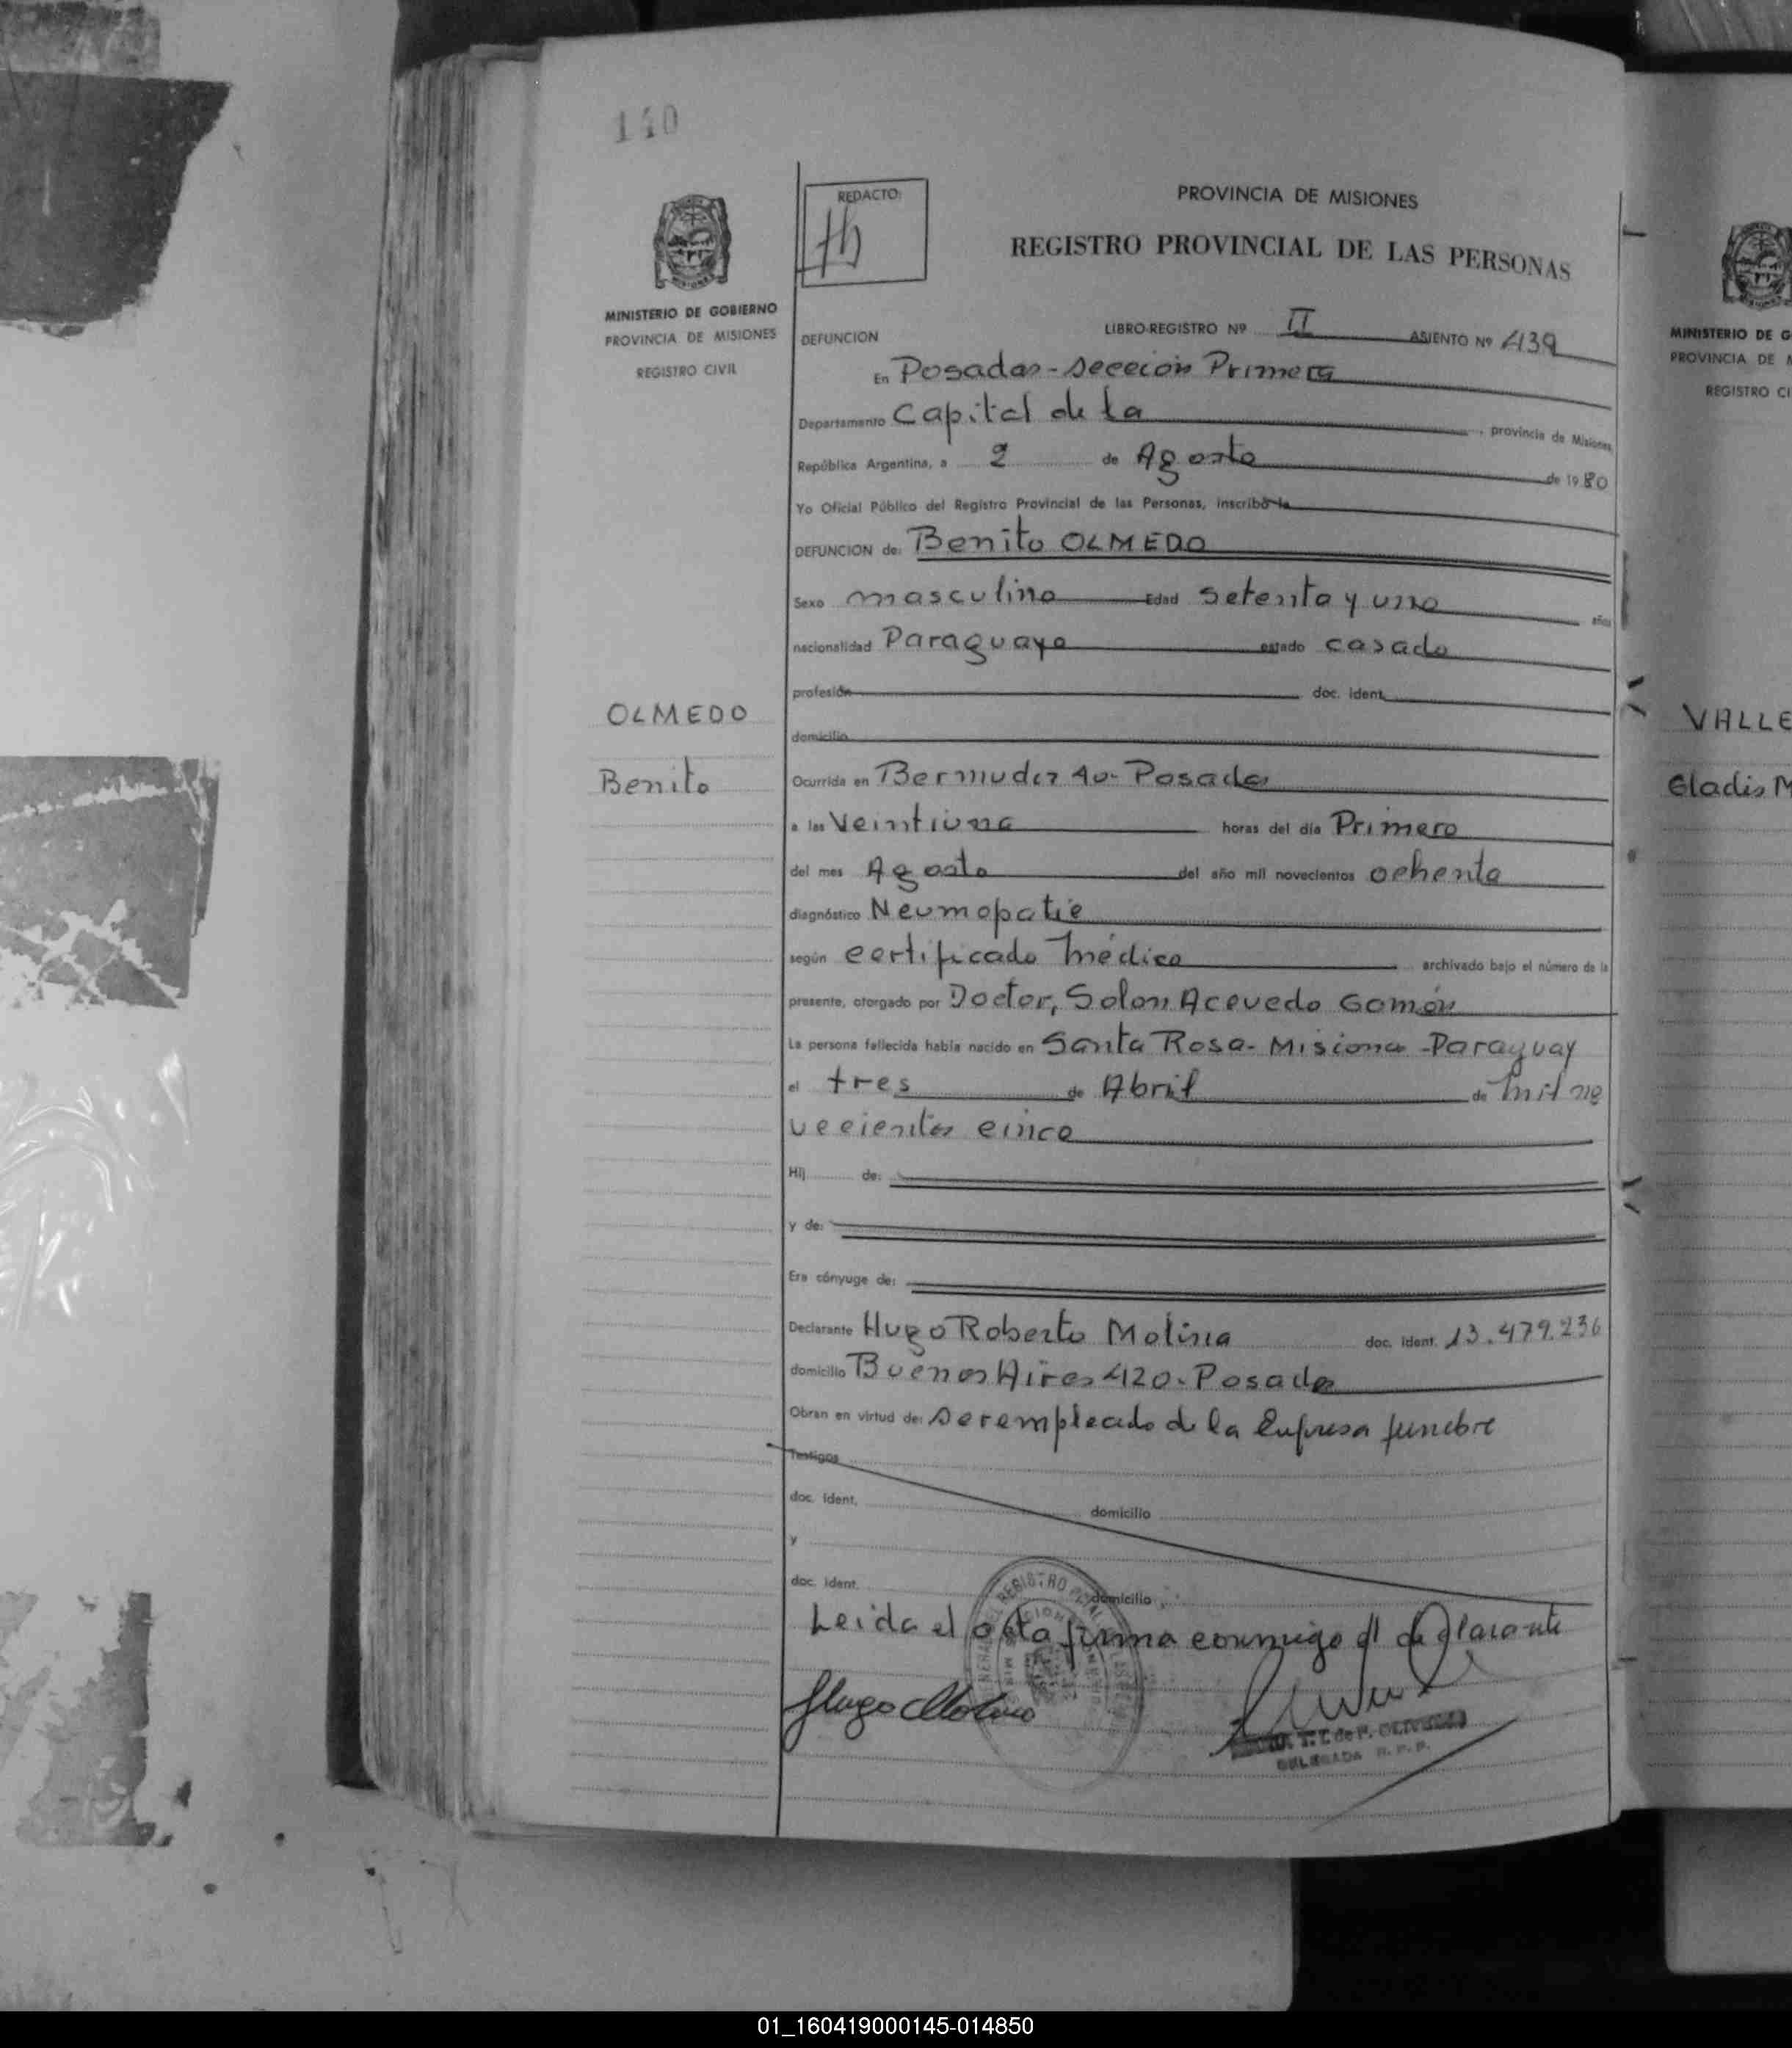 140
REDACTO:
PROVINCIA DE MISIONES
REGISTRO PROVINCIAL DE LAS PERSONAS
MINISTERIO DE GOBIERNO
PROVINCIA DE MISIONES
REGISTRO CIVIL
DEFUNCION LIBRO-REGISTRO Nº II ASIENTO Nº 439
En Posadas - Sección Primera
Departamento Capital de la, provincia de Misiones,
República Argentina, a 2 de Agosto de 1980
Yo Oficial Público del Registro Provincial de las Personas, inscribo la
DEFUNCION de: Benito OLMEDO
Sexo masculino Edad setenta y uno años
nacionalidad Paraguaya estado casado
profesión doc. ident.
OLMEDO
domicilio
Benito
Ocurrida en Bermudez Posadas
a las Veintiuna horas del día Primero
del mes Agosto del año mil novecientos ochenta
diagnóstico Neumopatie
según certificado médico archivado bajo el número de la
presente, otorgado por Doctor, Solon Acevedo Gomón
La persona fallecida había nacido en Santa Rosa - Misiones - Paraguay
el tres de Abril de mil no
vecientos cinco
Hij de:
y de:
Era cónyuge de:
Declarante Hugo Roberto Molina doc. ident. 13.479.236
domicilio Buenos Aires 420 - Posadas
Obran en virtud de: ser empleado de la Empresa funebre
Testigos
doc. ident. domicilio
y
doc. ident. domicilio
Leida el acta firma conmigo el declarante
Hugo Molina
DELEGADA R. P. P.
MINISTERIO DE G
PROVINCIA DE M
REGISTRO CI
VALLE
Gladis M
01_160419000145-014850